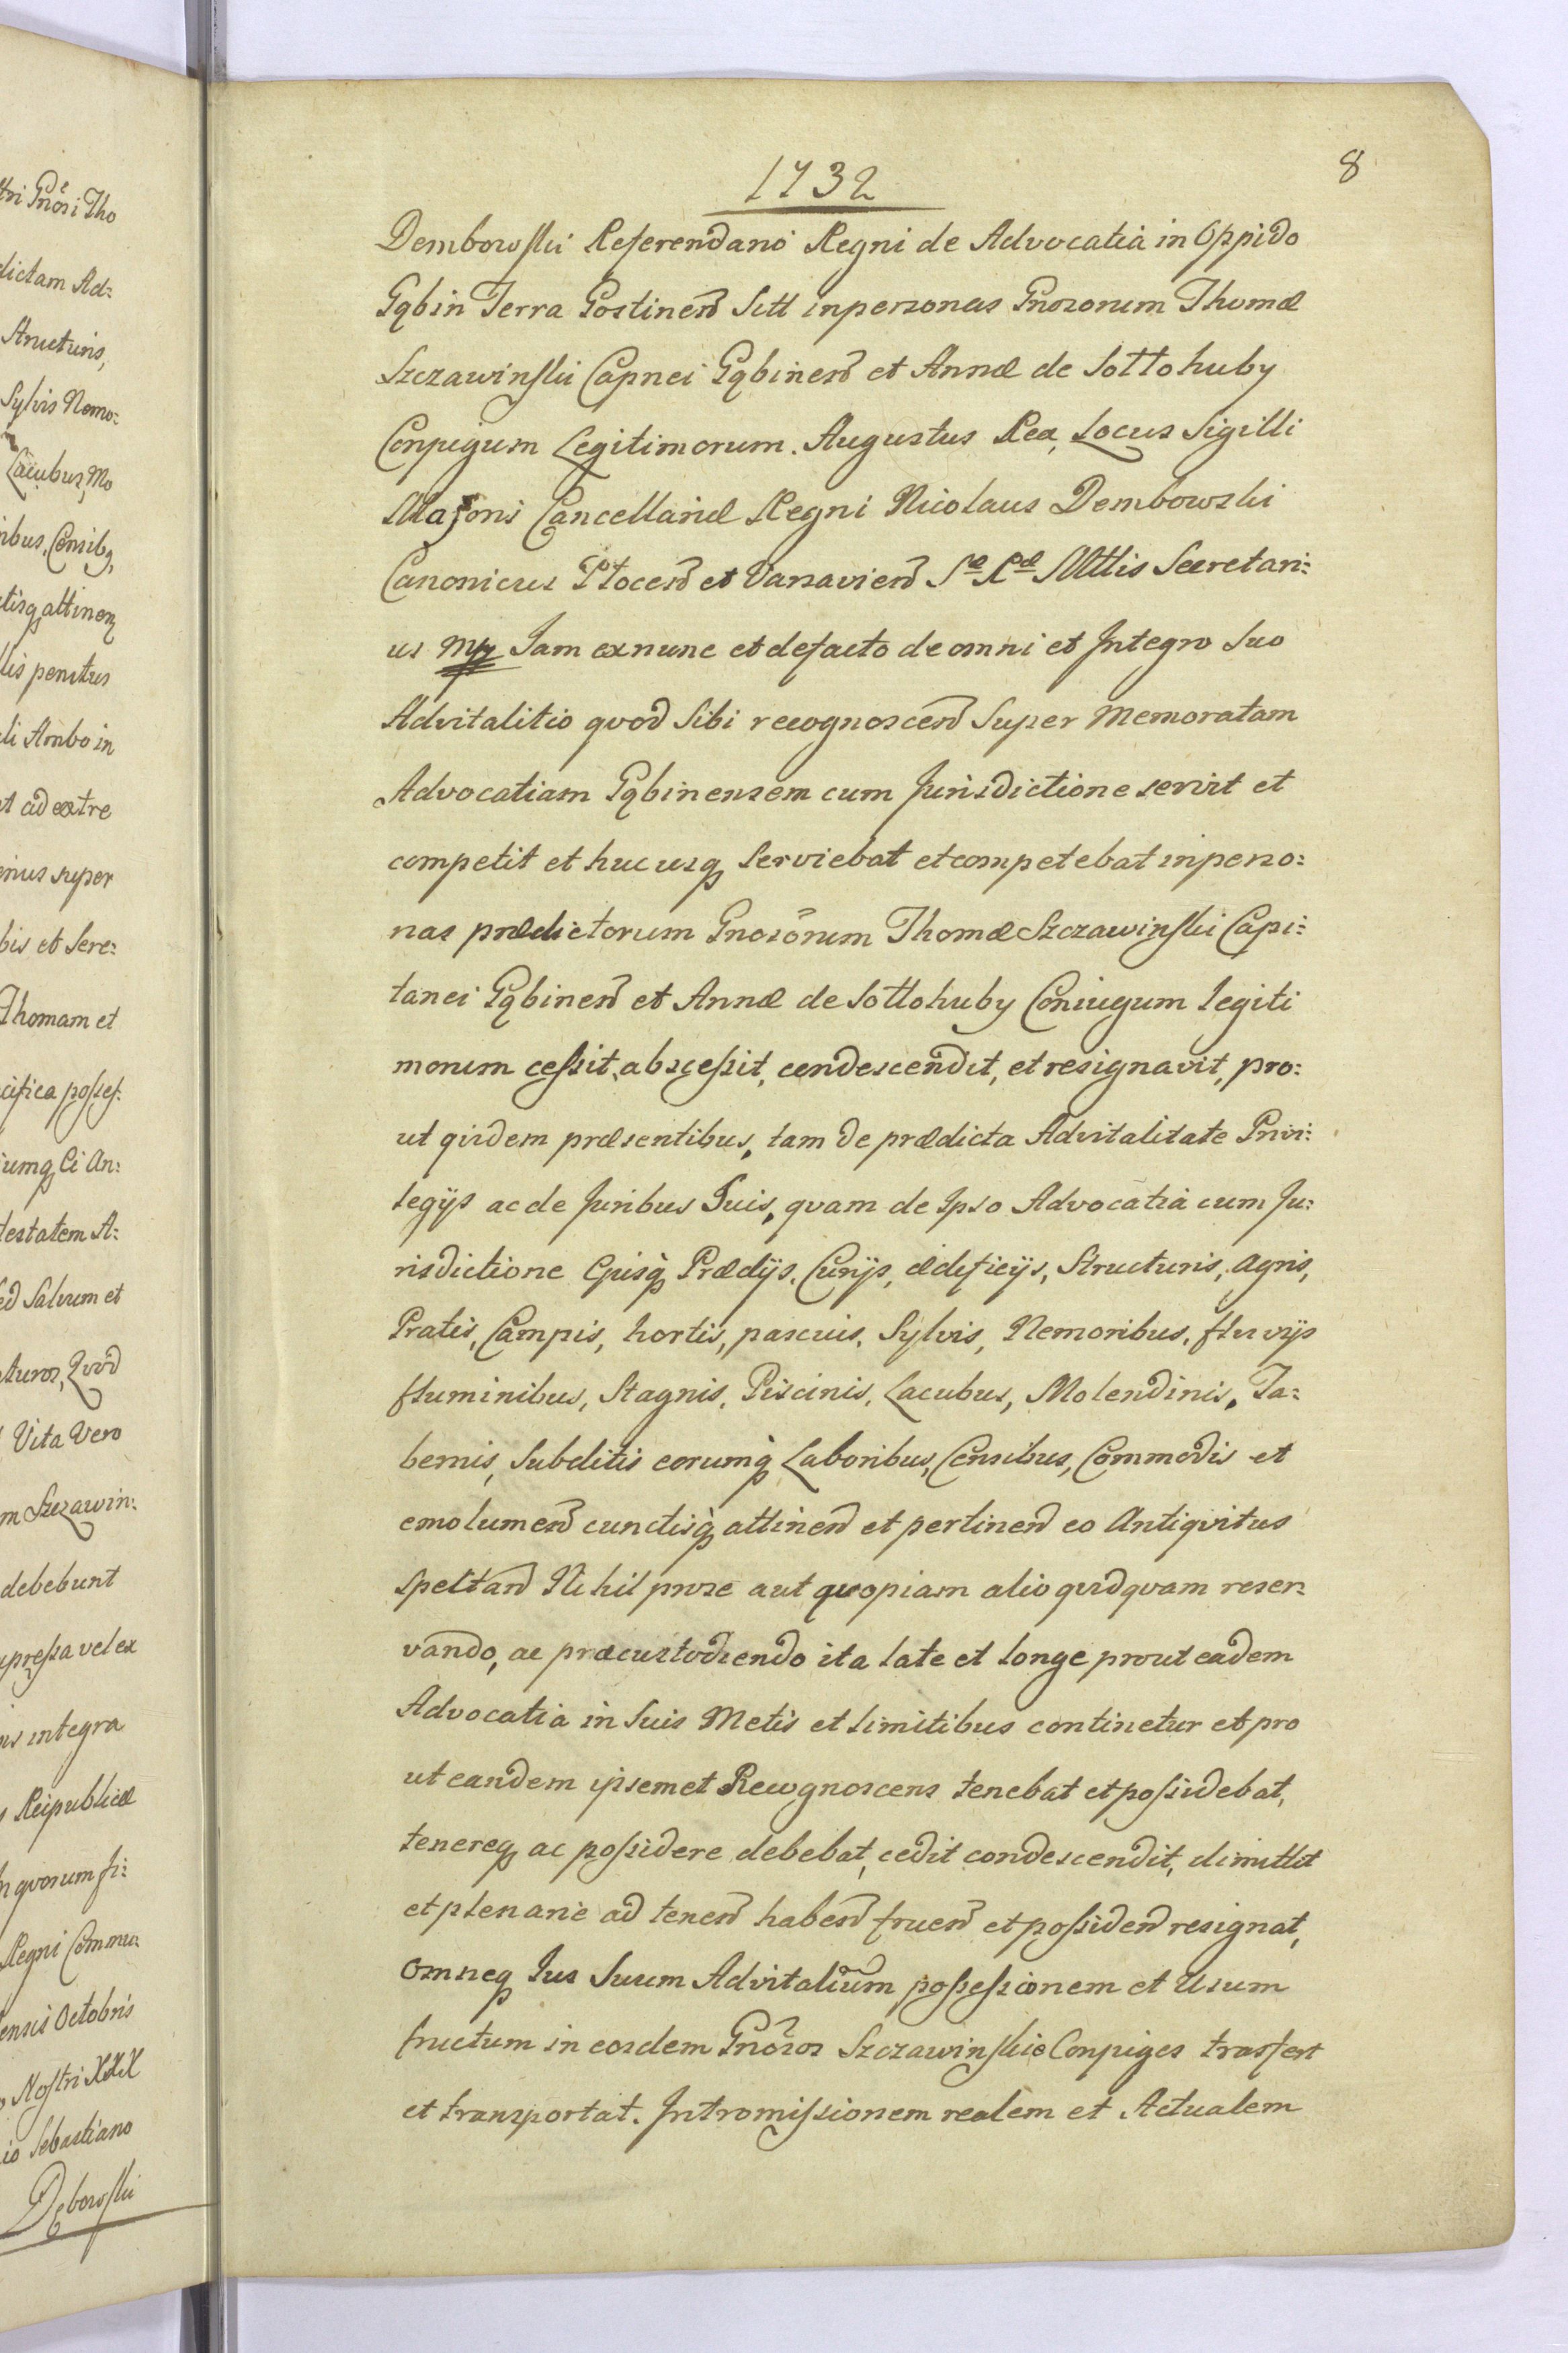 tri Gnosi Tho
dictam Ad:
Structuris,
Sylvis Nemo:
Lacubus, Mo
ibus, Censibq,
tisq attinen
lis penitus
li Ambo in
t ad extre
enius super
bis et Sere:
Thomam et
cifica possef:
iumq Ci An:
testatem A:
ed Salvum et
turos, Qvod
Vita Vero
m Szczawin:
debebunt
xpressa vel ex
is integra
Reipublicæ
n qvorum fi:
Regni Commu
ensis Octobris
o Nostri XXX
io Sebastiano
Dębowski
8
1732
Dembowski Referendario Regni de Advocatia in Oppido
Gąbin Terra Gostinen Sitt in personas Gnosorum Thomæ
Szczawinski Capnei Gąbinen et Annæ de Sottohuby
Conjugum Legitimorum. Augustus Rex, Locus Sigilli
Majoris Cancellariæ Regni Nicolaus Dembowski
Canonicus Płocen et Varsavien Sæ Ræ Mttis Secretari:
us mp Jam ex nunc et de facto de omni et Integro Suo
Advitalitio qvod Sibi recognoscen Super Memoratam
Advocatiam Gąbinensem cum Jurisdictione servit et
competit et huc usq Serviebat et competebat in perso:
nas prædictorum Gnosorum Thomæ Szczawinski Capi:
tanei Gąbinen et Annæ de Sottohuby Coniugum Legiti
morum cessit, abscessit, condescendit, et resignavit, pro:
ut qvidem præsentibus, tam de prædicta Advitalitate Privi:
legijs ac de Juribus Suis, qvam de Ipso Advocatia cum Ju:
risdictione Ejusq Prædijs, Curijs, ædificijs, Structuris, Agris,
Pratis, Campis, hortis, pascuis, Sylvis, Nemoribus, fluvijs
fluminibus, Stagnis, Piscinis, Lacubus, Molendinis, Ta:
bernis, Subditis eorumq Laboribus, Censibus, Commodis et
emolumen cunctisq attinen et pertinen eo Antiqvitus
Spectan Nihil pro se aut qvopiam alio qvidqvam reser:
vando, ac præcustodiendo ita late et longe prout eadem
Advocatia in Suis Metis et limitibus continetur et pro
ut eandem ipsemet Recognoscens tenebat et possidebat,
tenereq ac possidere debebat, cedit condescendit, dimittit
et plenarie ad tenen haben fruen et possiden resignat,
Omneq Jus Suum Advitalium possessionem et Usum
fructum in eosdem Gnosos Szczawinskie Conjuges trasfert
et transportat. Intromissionem realem et Actualem